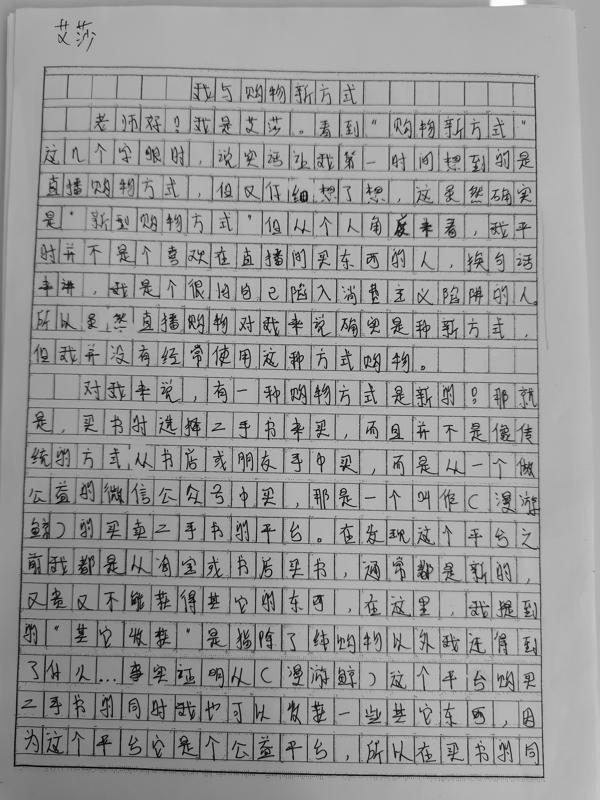 艾莎
我与购物新方式
老师好？我是艾莎。看到“购物新方式”
这几个字眼时，说实话让我第一时间想到的是
直播购物方式，但又仔细想了想，这虽然确实
是“新型购物方式”但从个人角度来看，我平
时并不是个喜欢在直播间买东西的人，换句话
来讲，我是个很怕自己陷入消费主义陷阱的人。
所以虽然直播购物对我来说确实是种新方式，
但我并没有经常使用这种方式购物。
对我来说，有一种购物方式是新的？那就
是，买书时选择二手书来买，而且并不是像传
统的方式从书店或朋友手中买，而是从一个做
公益的微信公众号中买，那是一个叫作（漫游
鲸）的买卖二手书的平台。在发现这个平台之
前我都是从淘宝或书店买书，通常都是新的，
又贵又不能获得其它的东西，在这里，我提到
的“其它收获”是指除了纯购物以外我还得到
了什么...事实证明从（漫游鲸）这个平台购买
二手书的同时我也可以收获一些其它东西，因
为这个平台它是个公益平台，所以在买书的同